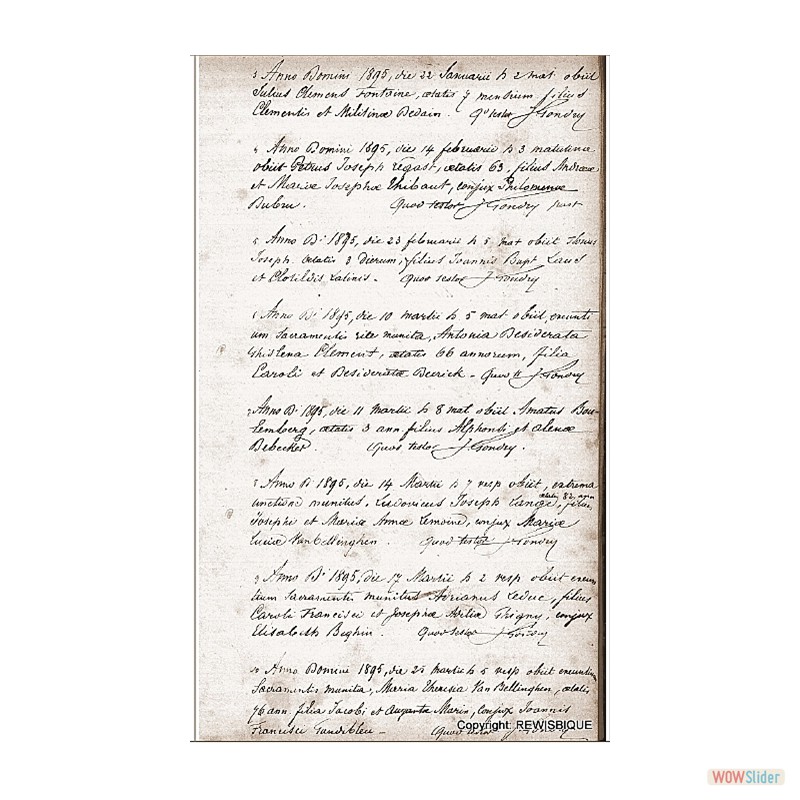 3 Anno Domini 1895, die 22 Januarii h 2 mat. obiit
Julius Clemens Fontaine, aetatis 7 mensium filius
Clementis et Militinae Dedain. Q testor J Gondry
4 Anno Domini 1895, die 14 februarii h 3 matutina
obiit Petrus Joseph Légast, aetatis 63, filius Andreae
et Mariae Josephae Thibaut, conjux Philomenae
Dubru. Quod testor J Gondry past
5 Anno D. 1895, die 23 februarii h 5 mat obiit
Joseph. aetatis 3 dierum, filius Joannis Bapt
et Clotildis Latinis. Quod testor J Gondry
6 Anno D. 1895, die 10 martii h 5 mat obiit,
sacramentis rite munita, Antonia Desiderata
Ghislena Clement, aetatis 66 annorum, filia
Caroli et Desiderata - Quod tt J Gondry
7 Anno D. 1895, die 11 Martii h 8 mat obiit Amatus Bou-
lemberg, aetatis 3 ann filius Alphonsi et
Debecker. Quod testor J Gondry.
8 Anno D. 1895, die 14 Martii h 7 vesp obiit, extrema
unctione munitus, Ludovicus Joseph Lange, aetatis 82 ann filius
Josephi et Mariae Annae Lemoine, conjux Mariae
Luciae Van Bellinghen. Quod testor J Gondry
9 Anno D. 1895, die 17 Martii h 2 vesp obiit
sacramentis munitus Adrianus Leduc, filius
Caroli Francisci et Josephae Trigny, conjux
Elisabeth Beghin. Quod testor J Gondry
10 Anno Domini 1895, die martii h 5 vesp obiit
Sacramentis munita, Maria Theresia Van Bellinghen, aetatis
76 ann. filia Jacobi et Augusta Marin, conjux Joannis
Francisci - Quod testor J. Gondry
Copyright: REWISBIQUE
WOWSlider